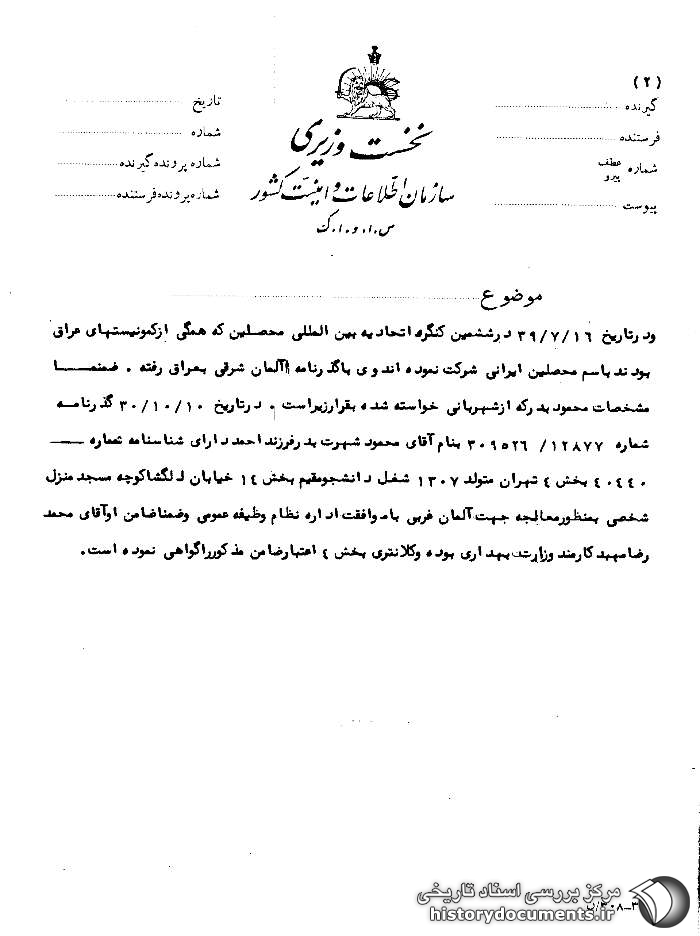 (۲)
گیرنده
فرستنده
شماره عطف پیرو
پیوست
نخست وزیری
سازمان اطلاعات و امنیت کشور
س.ا.و.ا.ک
تاریخ
شماره
شماره پرونده گیرنده
شماره پرونده فرستنده
موضوع
ودرتاریخ ۳۹/۷/۱۶ درششمین کنگره اتحادیه بین المللی محصلین که همگی ازکمونیستهای عراق
بودند باسم محصلین ایرانی شرکت نموده اندوی باگذرنامه آلمان شرقی بعراق رفته . ضمنا
مشخصات محمود بدرکه ازشهربانی خواسته شده بقرارزیراست . درتاریخ ۳۰/۱۰/۱۰ گذرنامه
شماره ۱۲۸۷۷/ ۳۰۹۵۲۶ بنام آقای محمود شهرت بدرفرزند احمد دارای شناسنامه شماره
۴۰۴۴۰ بخش ٤ تهران متولد ۱۳۰۷ شغل دانشجومقیم بخش ۱٤ خیابان دلگشاکوچه مسجد منزل
شخصی بمنظورمعالجه جهت آلمان غربی باموافقت اداره نظام وظیفه عمومی وضمناضامن اوآقای محمد
رضا سهبد کارمند وزارت بهداری بوده وکلانتری بخش ٤ اعتبارضامن مذکورراگواهی نموده است.
مرکز بررسی اسناد تاریخی
historydocuments.ir